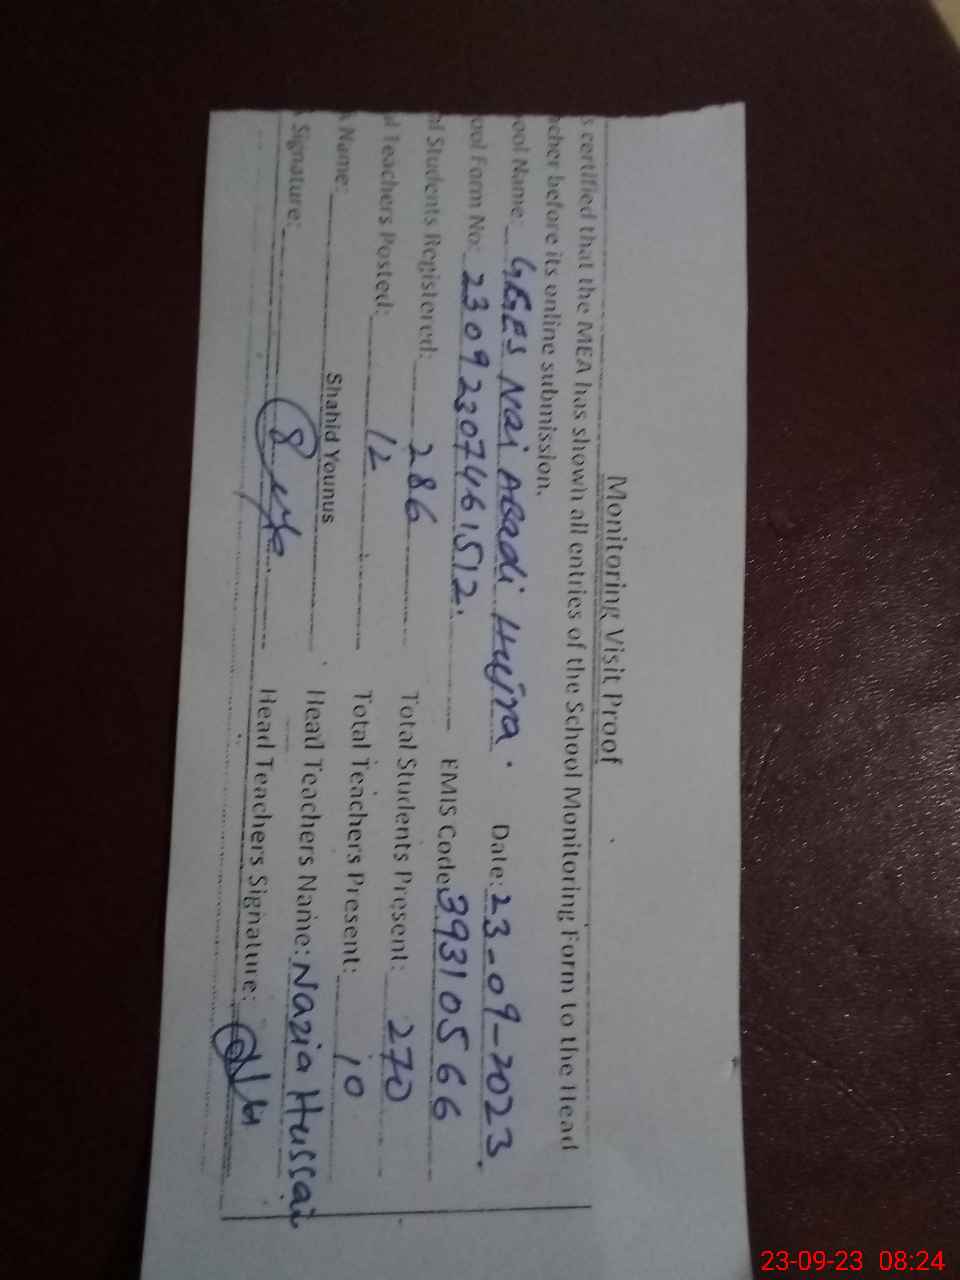 Monitoring Visit Proof
s certified that the MEA has shown all entries of the School Monitoring Form to the Head
cher before its online submission.
ool Name: GGES Nai Abadi Hujra. Date: 23-09-2023.
ool Form No: 23092307461512. EMIS Code: 39310566
al Students Registered: 286 Total Students Present: 270
al Teachers Posted: 12 Total Teachers Present: 10
A Name: Shahid Younus Head Teachers Name: Nazia Hussai
Signature: Head Teachers Signature:
23-09-23 08:24